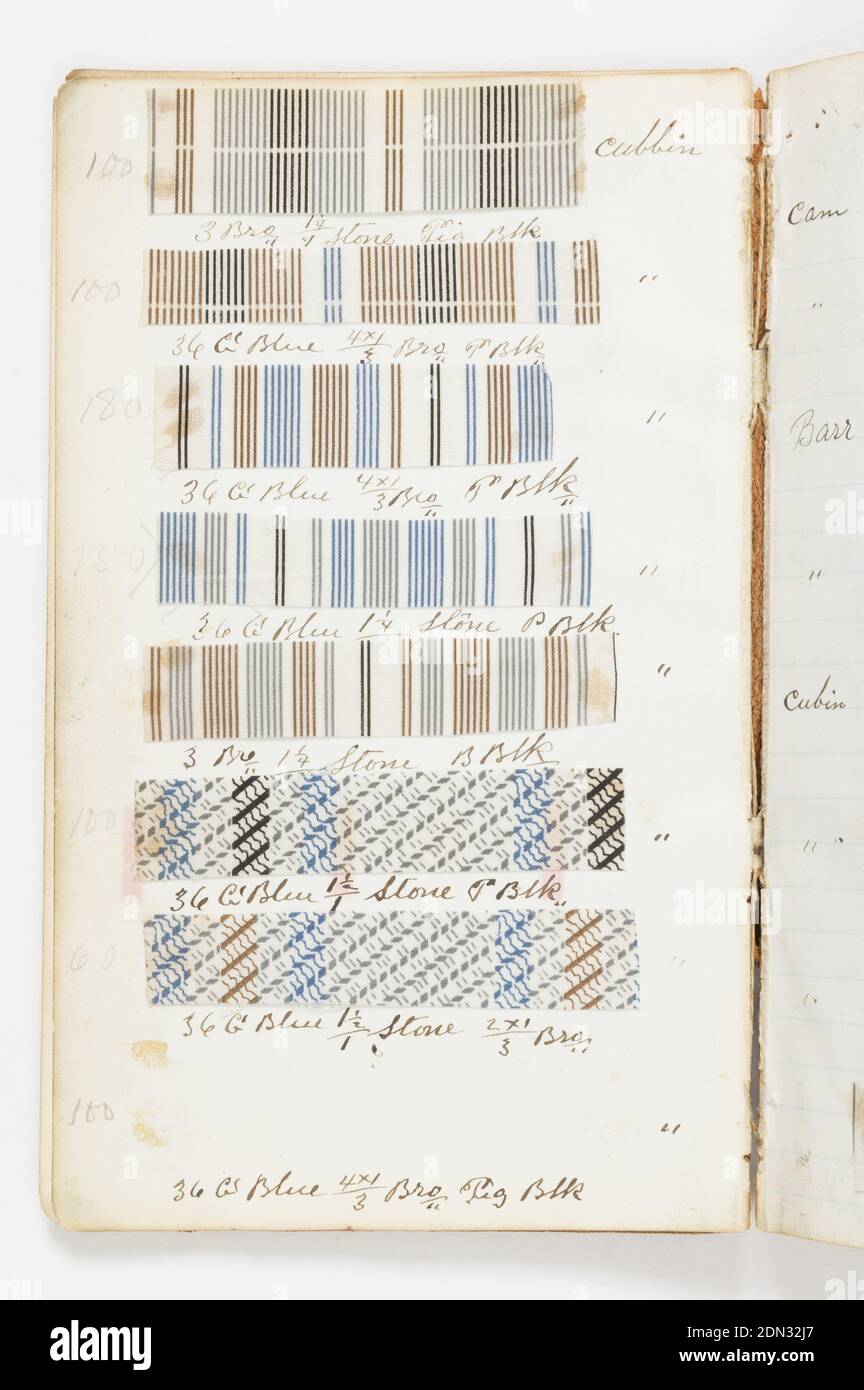 100 cubbin
3 Bro 1 1/4 Stone Pig Blk
100 "
36 Cl Blue 4x1/3 Bro P Blk
180 "
36 Cl Blue 4x1/3 Bro P Blk
150 "
36 Cl Blue 1 1/4 Stone P Blk
"
3 Bro 1 1/4 Stone B Blk
100 "
36 Cl Blue 1 1/2/1 Stone P Blk
60 "
36 Cl Blue 1 1/2/1 Stone 2x1/3 Bro
100 "
36 Cl Blue 4x1/3 Bro Pig Blk
Cam
"
Barr
"
Cubin
"
"
"
alamy
Image ID: 2DN32J7
www.alamy.com